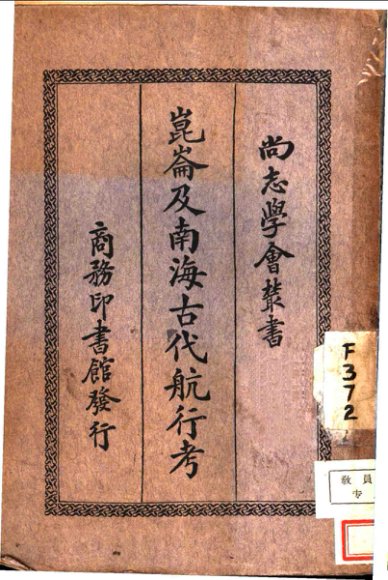 尚志學會叢書
崑崙及南海古代航行考
商務印書館發行
F372
教員
专